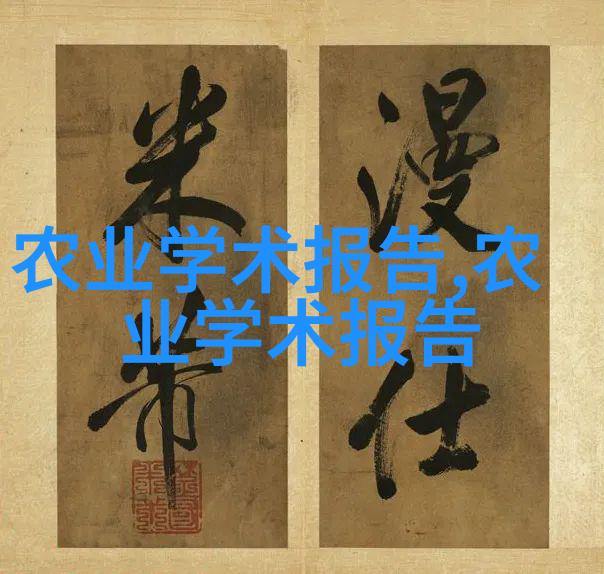 农业学术报告,农
业学术报告
漫仕
米芾